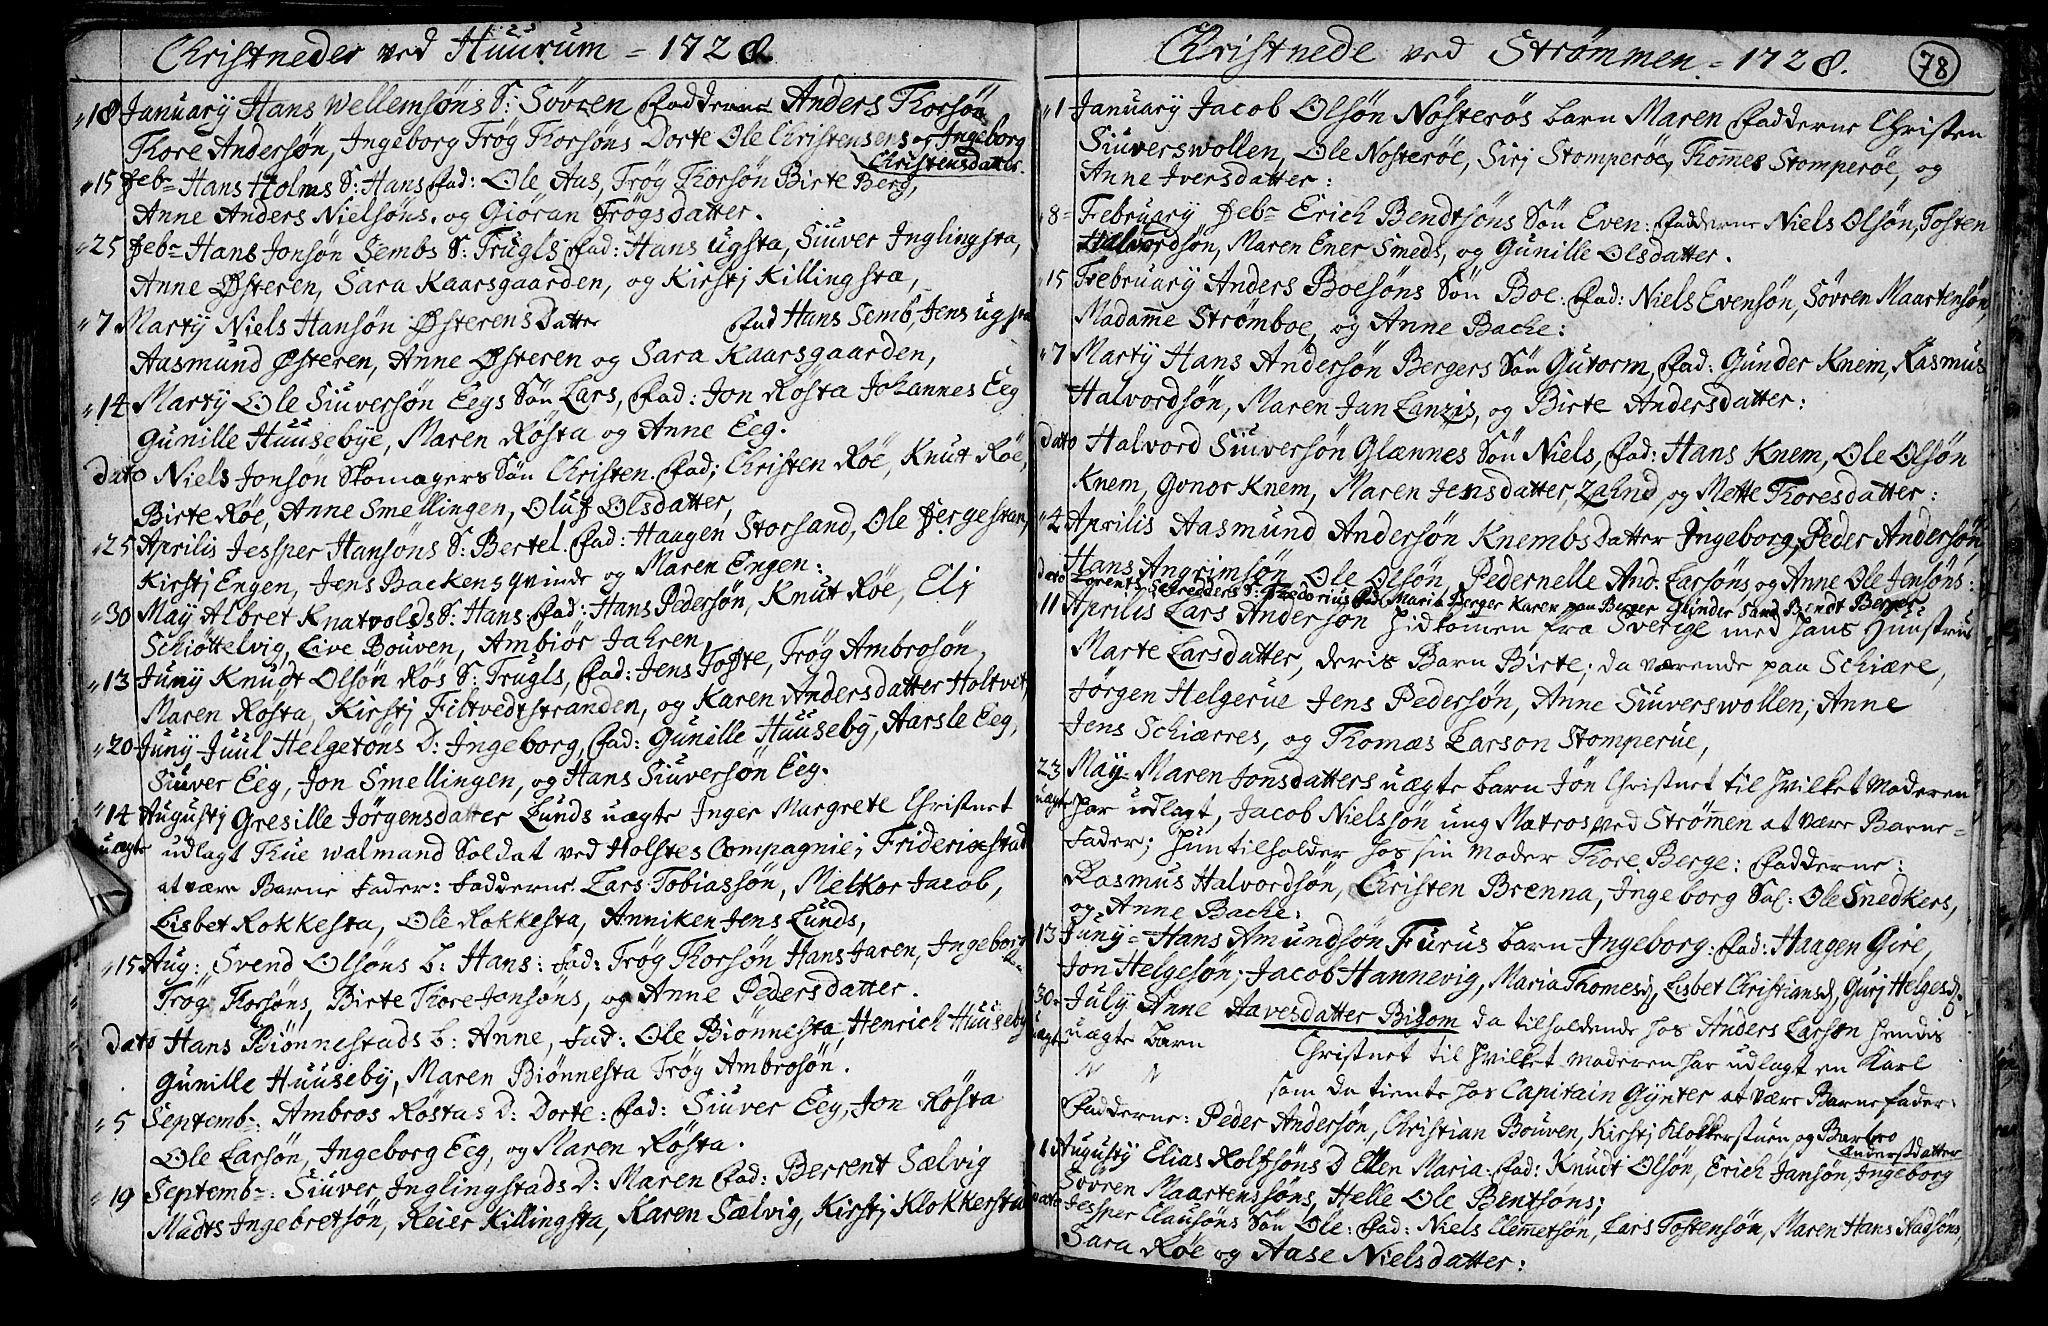 Christneder ved Huurum = 1728
"18 January Hans Wellemsöns S: Sövren Fadderne Anders Thorsön
Thore Andersön, Ingeborg Trög Thorsöns Dorte Ole Christensens og Ingeborg
Christensdatter.
"15 Feb~ Hans Holms S: Hans Fad: Ole Aas, Trög Thorsön Birte Berg,
Anne Anders Nielsöns, og Giöran Trögsdatter.
"25 Feb~ Hans Jonsön Sembs S: Trugls Fad: Hans Ugsta, Siuver Inglingsta,
Anne Østeren, Sara Kaarsgaarden, og Kirstj Killingsta,
"7 Martÿ Niels Hansön Østerens Datter Fad Hans Semb, Jens Ugsta
Aasmund Østeren, Anne Østeren og Sara Kaarsgaarden,
"14 Martÿ Ole Siuversön Eegs Sön Lars, Fad: Jon Rösta Johannes Eeg
Gunille Huusebye, Maren Rösta og Anne Eeg.
Dato Niels Jonsön Skomagers Sön Christen. Fad; Christen Röe, Knut Röe,
Birte Röe, Anne Smellingen, Oluf Olsdatter,
"25 Aprilis Jessper Hansöns S: Bertel. Fad: Haagen Storsand, Ole Fergestan,
Kirstj Engen, Jens Backens qvinde og Maren Engen:
"30 May Albret Knatvolds S: Hans Fad: Hans Pedersön, Knut Röe, Elj
Schiöttelvig, Live Bouven, Ambiör Jahren,
"13 Junÿ Knudt Olsön Rös S: Trugls, Fad: Jens Tofte, Trög Ambrosön,
Maren Rösta, Kirstj Filtvedtstranden, og Karen Andersdatter Holtvet,
"20 Junÿ Juul Helgesöns D: Ingeborg, Fad: Gunille Huusebÿ, Aarsle Eeg,
Siuver Eeg, Jon Smellingen, og Hans Siuversön Eeg.
"14 Augustj Gresille Jörgensdatter Lunds uægte Inger Margrete Christnet
uægte udlagt Thue Walmand Soldat ved Holstes Compagnie i Friderichstad
at være Barne Fader: Fadderne Lars Tobiassön, Melkor Jacob,
Lisbet Rokkesta, Ole Rokkesta, Anniken Jens Lunds,
"15 Aug: Svend Olsöns b: Hans: Fad: Trög Thorsön Hans Jaren, Ingeborg
Trög Thorsöns, Birte Thore Jonsöns, og Anne Pedersdatter.
Dato Hans Biönnestads b: Anne, Fad: Ole Biönnesta, Henrich Huuseby
Gunille Huusebÿ, Maren Biönnesta Trög Ambrosön.
"5 Septemb~: Ambros Röstas D: Dorte: Fad: Siuver Eeg, Jon Rösta
Ole Larsön, Ingeborg Eeg, og Maren Rösta.
"19 Septemb~: Siuver Inglingstads D: Maren Fad: Berrent Sælvig
Madts Ingebretsön, Reier Killingsta, Karen Sælvig, Kirstj Klokkerstua
Christnede ved Strömmen = 1728.
78
"1 January Jacob Olsön Nösterös barn Maren Fadderne Christen
Siuverswollen, Ole Nosteröe, Sirj Stomperöe, Thomes Stomperöe, og
Anne Iversdatter:
"8= February Feb~ Erich Bendtsöns Sön Even: Fadderne Niels Olsön, Tosten
Halvordsön, Maren Ener Smeds, og Gunille Olsdatter.
15 February Anders Boesöns Sön Boe: Fad: Niels Evensön, Sövren Maartensön,
Madamme Strömboe, og Anne Bache:
"7 Martÿ Hans Andersön Bergers Sön Gutorm, Fad: Gunder Knem, Rasmus
Halvordsön, Maren Jan Lanzis, og Birte Andersdatter:
Dato Halvord Siuversön Glænnes Sön Niels, Fad: Hans Knem, Ole Olsön
Knem, Gonor Knem, Maren Jensdatter, Zahnd, og Mette Thoresdatter:
"2 Aprilis Aasmund Andersön Knembs Datter Ingeborg, Peder Andersön
Hans Angrimsön Ole Olsön, Pedernelle And: Larsöns og Anne Ole Jensöns:
dato Lorents S: Fredorius Fad: Maria Berger Karen paa Berger Gunder Sand Bendt Berger
11 Aprilis Lars Anderson hidkomen fra Sverige med hans Hustrue
Marte Larsdatter, deris Barn Birte; da værende paa Schiære,
Jörgen Helgerue Jens Pedersön, Anne Siuverswollen, Anne
Jens Schiærres, og Thomæs Larson Stomperue,
23 May= Maren Jonsdatters uægte barn Jön Christnet til hvilket Moderen
uægte har udlagt, Jacob Nielssön ung Matros ved Strömen at være Barne=
Fader; hun tilholder hos sin Moder Thore Berge: Fadderne:
Rasmus Halvordsön, Christen Brenna, Ingeborg Sal: Ole Snedkers,
og Anne Bache:
13 Junÿ= Hans Amundsön Furus barn Ingeborg: Fad: Haagen Gire,
Jon Helgesön, Jacob Hannevig, Maria Thomesd, Lisbet Christiansd, Gurj Helgesd.
30= July Anne Aavesdatter Bigom da tilholdende hos Anders Larsön hendis
uægte uægte barn Christnet til hvilket Moderen har udlagt en Karl
" " som da tiente hos Capitain Gÿnter at være Barne fader:
Fadderne: Peder Andersön, Christian Bouven, Kirstj Klokkerstuen og Barbro
Andersdatter
1 Augustÿ Elias Rolfsöns D Ellen Maria: Fad: Knudt Olsön, Erich Jansön, Ingeborg
Sövren Maartenssöns, Helle Ole Bentsöns;
Dato Jesper Clausöns Sön Ole: Fad: Niels Clemetsön, Lars Tostensön, Maren Hans Aadsöns,
Sara Röe og Aase Nielsdatter: